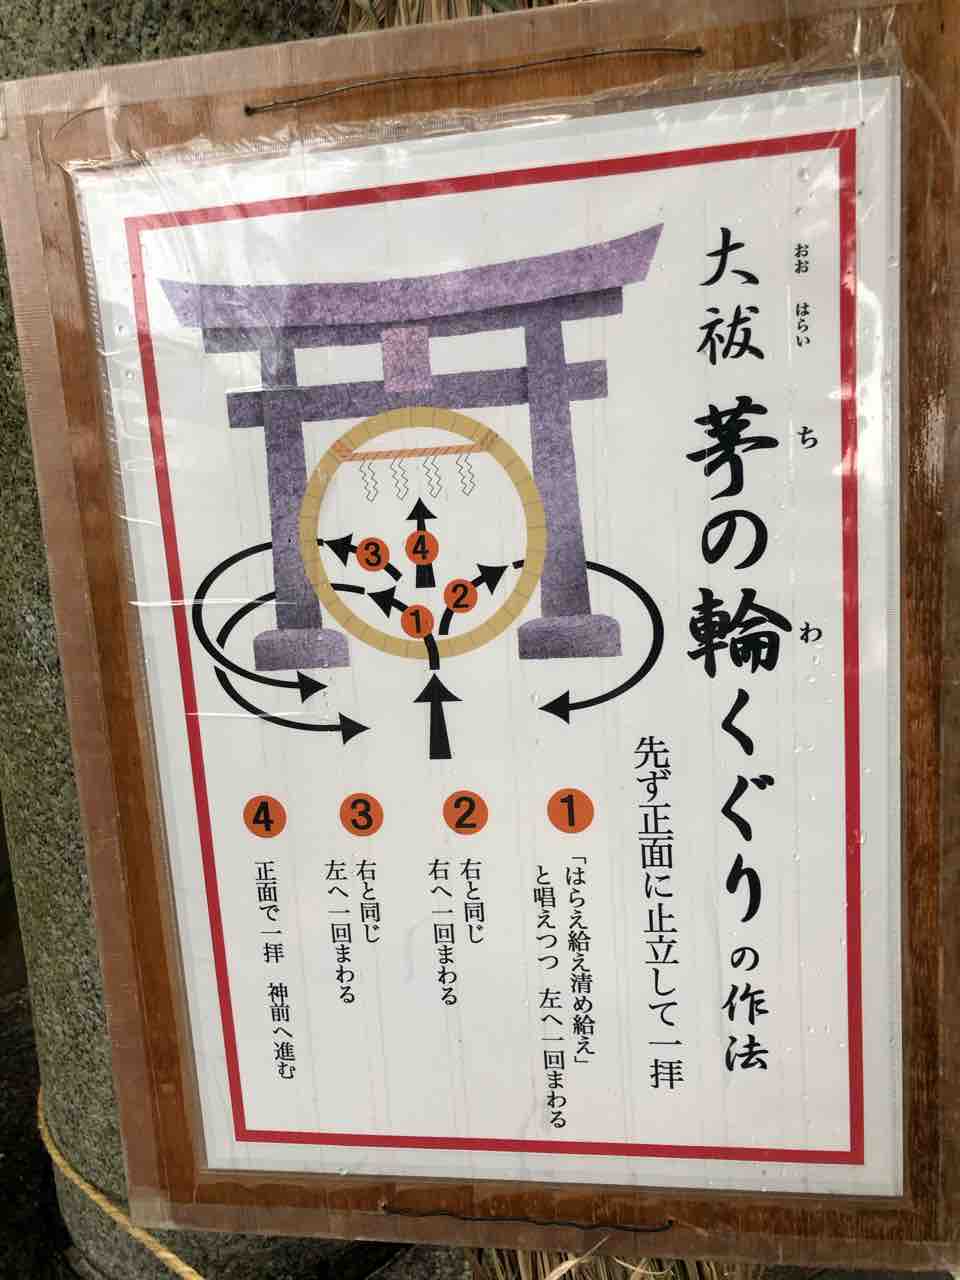 大祓 茅の輪くぐりの作法
おお はらい ち わ
先ず正面に止立して一拝
1
「はらえ給え清め給え」
と唱えつつ 左へ一回まわる
2
右と同じ
右へ一回まわる
3
右と同じ
左へ一回まわる
4
正面で一拝 神前へ進む
3
4
1
2